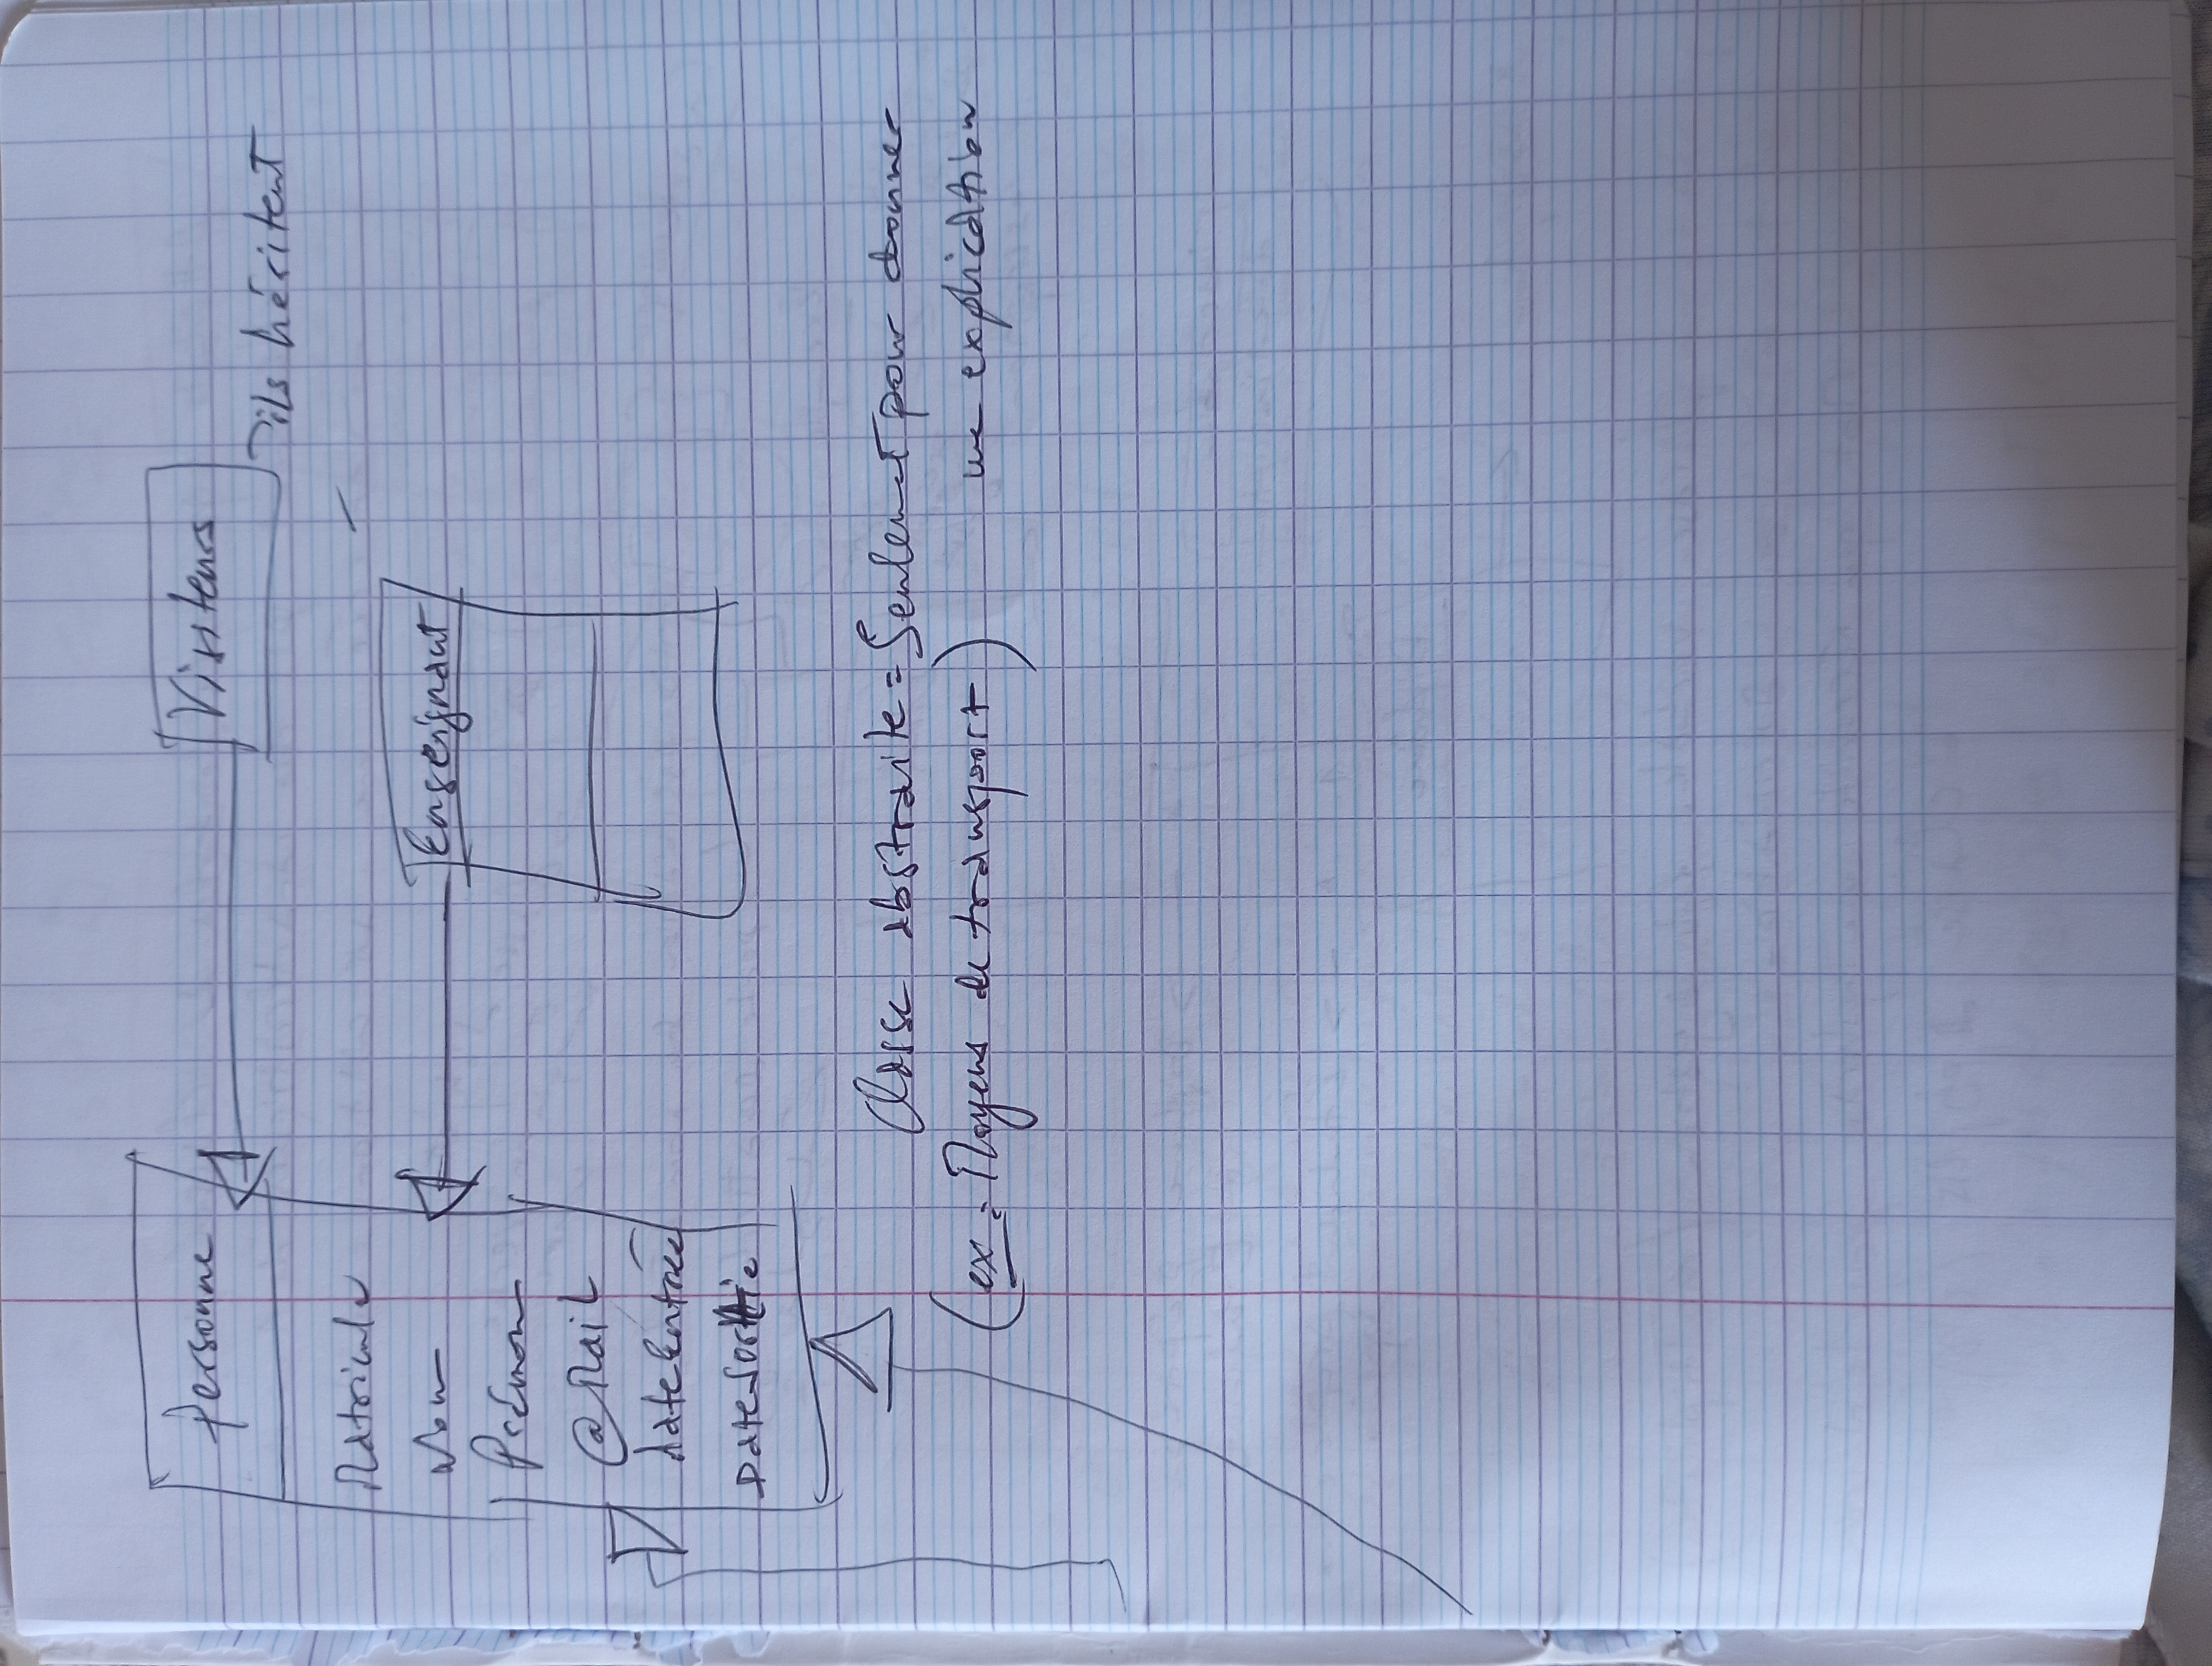 Personne
Matricule
Nom
Prénom
@Mail
dateEntrée
DateSortie
Visiteurs
ils héritent
Enseignant
Classe abstraite = Seulement pour donner
une explication
(ex: Moyens de transport)